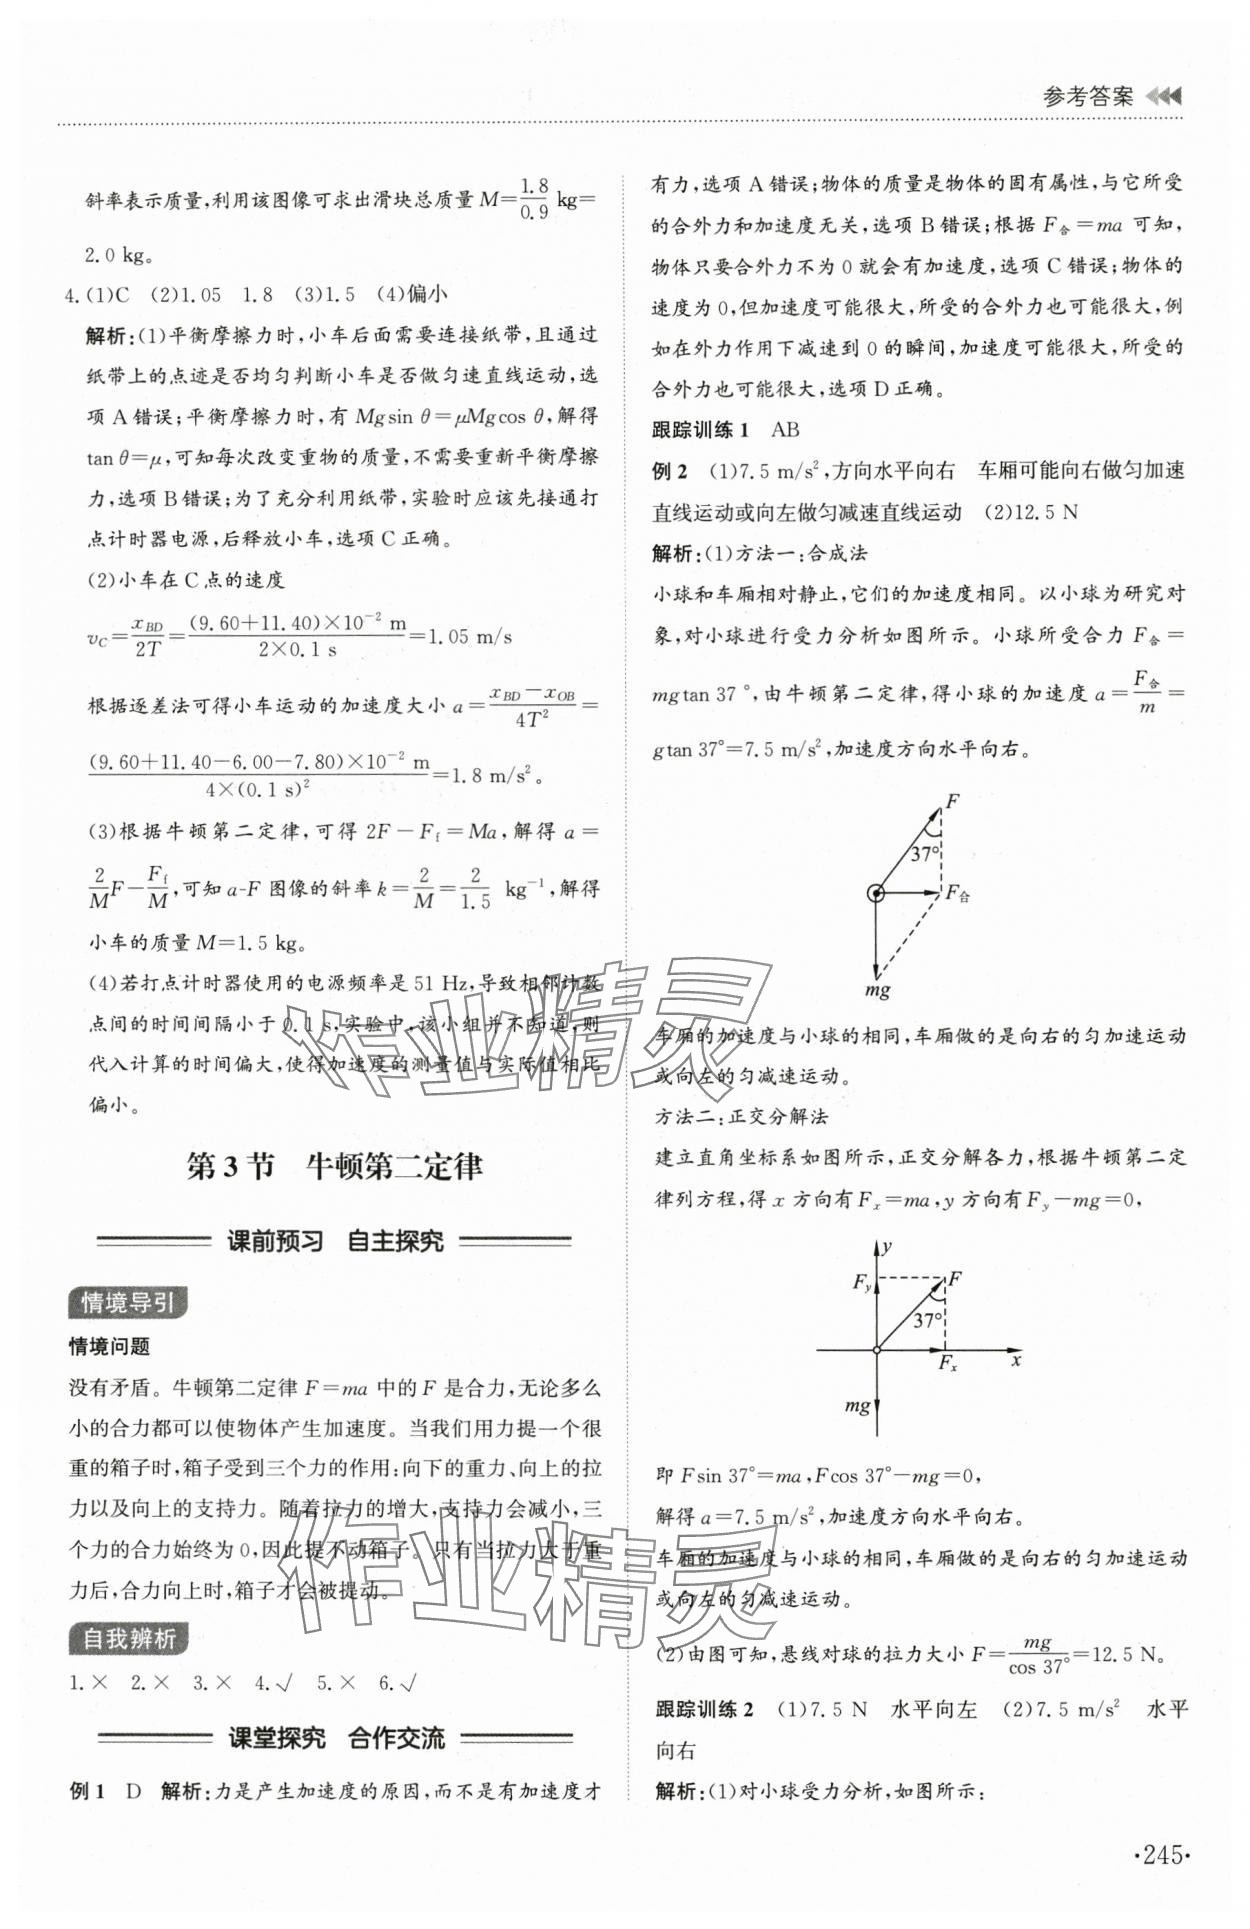 参考答案
斜率表示质量,利用该图像可求出滑块总质量 M=1.8/0.9 kg=
2.0 kg。
4.(1)C (2)1.05 1.8 (3)1.5 (4)偏小
解析:(1)平衡摩擦力时,小车后面需要连接纸带,且通过
纸带上的点迹是否均匀判断小车是否做匀速直线运动,选
项 A 错误;平衡摩擦力时,有 Mgsin θ=μMgcos θ,解得
tan θ=μ,可知每次改变重物的质量,不需要重新平衡摩擦
力,选项 B 错误;为了充分利用纸带,实验时应该先接通打
点计时器电源,后释放小车,选项 C 正确。
(2)小车在 C 点的速度
v_C=x_BD/2T=(9.60+11.40)×10⁻² m/2×0.1 s=1.05 m/s
根据逐差法可得小车运动的加速度大小 a=(x_BD-x_OB)/4T²=
(9.60+11.40-6.00-7.80)×10⁻² m/4×(0.1 s)²=1.8 m/s²。
(3)根据牛顿第二定律,可得 2F-F_f=Ma,解得 a=
2/M F-F_f/M,可知 a-F 图像的斜率 k=2/M=2/1.5 kg⁻¹,解得
小车的质量 M=1.5 kg。
(4)若打点计时器使用的电源频率是 51 Hz,导致相邻计数
点间的时间间隔小于 0.1 s,实验中,该小组并不知道,则
代入计算的时间偏大,使得加速度的测量值与实际值相比
偏小。
第 3 节 牛顿第二定律
课前预习 自主探究
情境导引
情境问题
没有矛盾。牛顿第二定律 F=ma 中的 F 是合力,无论多么
小的合力都可以使物体产生加速度。当我们用力提一个很
重的箱子时,箱子受到三个力的作用:向下的重力、向上的拉
力以及向上的支持力。随着拉力的增大,支持力会减小,三
个力的合力始终为 0,因此提不动箱子。只有当拉力大于重
力后,合力向上时,箱子才会被提动。
自我辨析
1.× 2.× 3.× 4.√ 5.× 6.√
课堂探究 合作交流
例 1 D 解析:力是产生加速度的原因,而不是有加速度才
有力,选项 A 错误;物体的质量是物体的固有属性,与它所受
的合外力和加速度无关,选项 B 错误;根据 F合=ma 可知,
物体只要合外力不为 0 就会有加速度,选项 C 错误;物体的
速度为 0,但加速度可能很大,所受的合外力也可能很大,例
如在外力作用下减速到 0 的瞬间,加速度可能很大,所受的
合外力也可能很大,选项 D 正确。
跟踪训练 1 AB
例 2 (1)7.5 m/s²,方向水平向右 车厢可能向右做匀加速
直线运动或向左做匀减速直线运动 (2)12.5 N
解析:(1)方法一:合成法
小球和车厢相对静止,它们的加速度相同。以小球为研究对
象,对小球进行受力分析如图所示。小球所受合力 F合=
mgtan 37°,由牛顿第二定律,得小球的加速度 a=F合/m=
gtan 37°=7.5 m/s²,加速度方向水平向右。
F
37°
F合
mg
车厢的加速度与小球的相同,车厢做的是向右的匀加速运动
或向左的匀减速运动。
方法二:正交分解法
建立直角坐标系如图所示,正交分解各力,根据牛顿第二定
律列方程,得 x 方向有 F_x=ma,y 方向有 F_y-mg=0,
y
F_y
F
37°
F_x
x
mg
即 Fsin 37°=ma,Fcos 37°-mg=0,
解得 a=7.5 m/s²,加速度方向水平向右。
车厢的加速度与小球的相同,车厢做的是向右的匀加速运动
或向左的匀减速运动。
(2)由图可知,悬线对球的拉力大小 F=mg/cos 37°=12.5 N。
跟踪训练 2 (1)7.5 N 水平向左 (2)7.5 m/s² 水平
向右
解析:(1)对小球受力分析,如图所示:
·245·
作业精灵
作业精灵